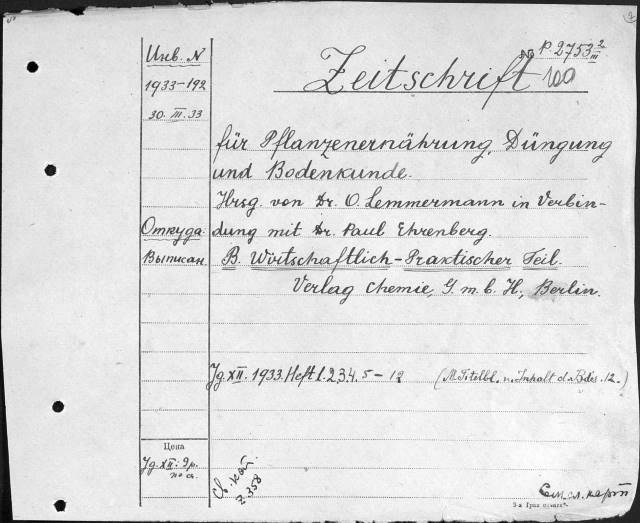 № P. 2753 2/III
Инв. N
1933-192
30.III.33
Zeitschrift 100
für Pflanzenernährung, Düngung
und Bodenkunde.
Hrsg. von Dr. O. Lemmermann in Verbin-
dung mit Dr. Paul Ehrenberg.
Откуда
Выписан.
B. Wirtschaftlich-Praktischer Teil.
Verlag Chemie, G.m.b.H., Berlin.
Jg. XII. 1933. Heft 1.2.3.4. 5-12 (M. Titelbl. u. Inhalt d. Bdes. 12.)
Цена
Jg. XII: 9 р.
по сч.
Св. кат.
Z. 358
См. сл. карт